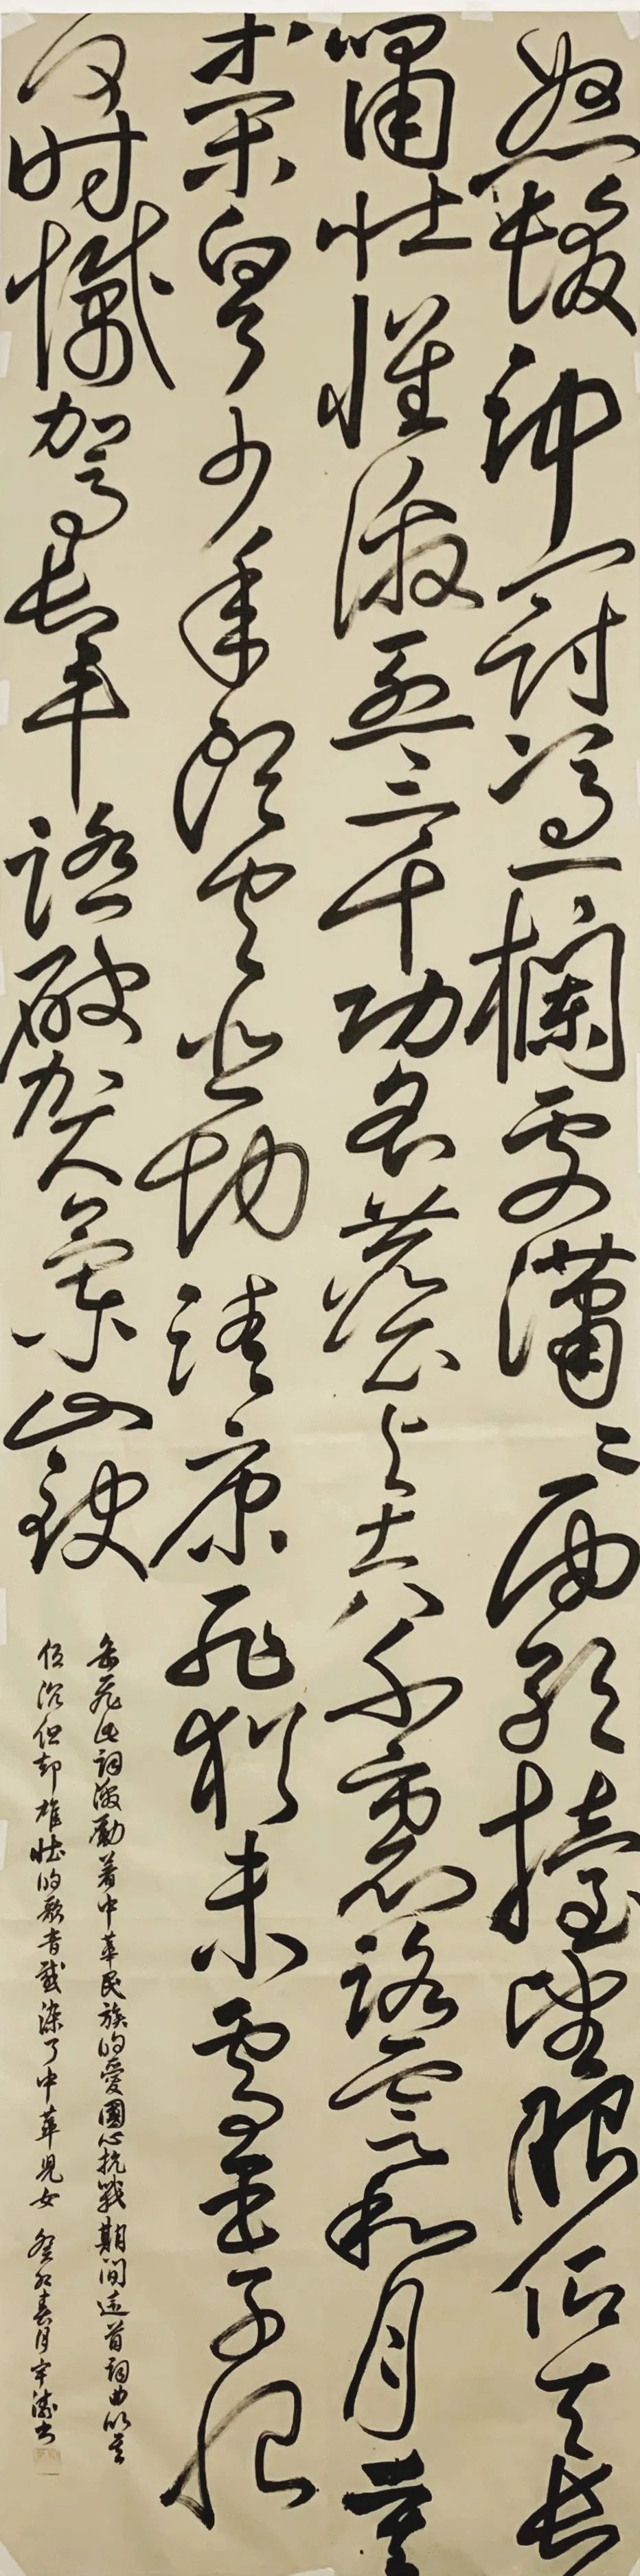 怒髮冲冠憑欄處瀟瀟雨歇擡望眼仰天長
嘯壯懷激烈三十功名塵與土八千里路雲和月莫
等閑白了少年頭空悲切靖康耻猶未雪臣子恨
何時滅駕長車踏破賀蘭山缺
岳飛此詞激勵着中華民族的愛國心抗戰期間這首詞曲以其
低沉但却雄壯的歌音感染了中華兒女 癸卯春月宇濤書